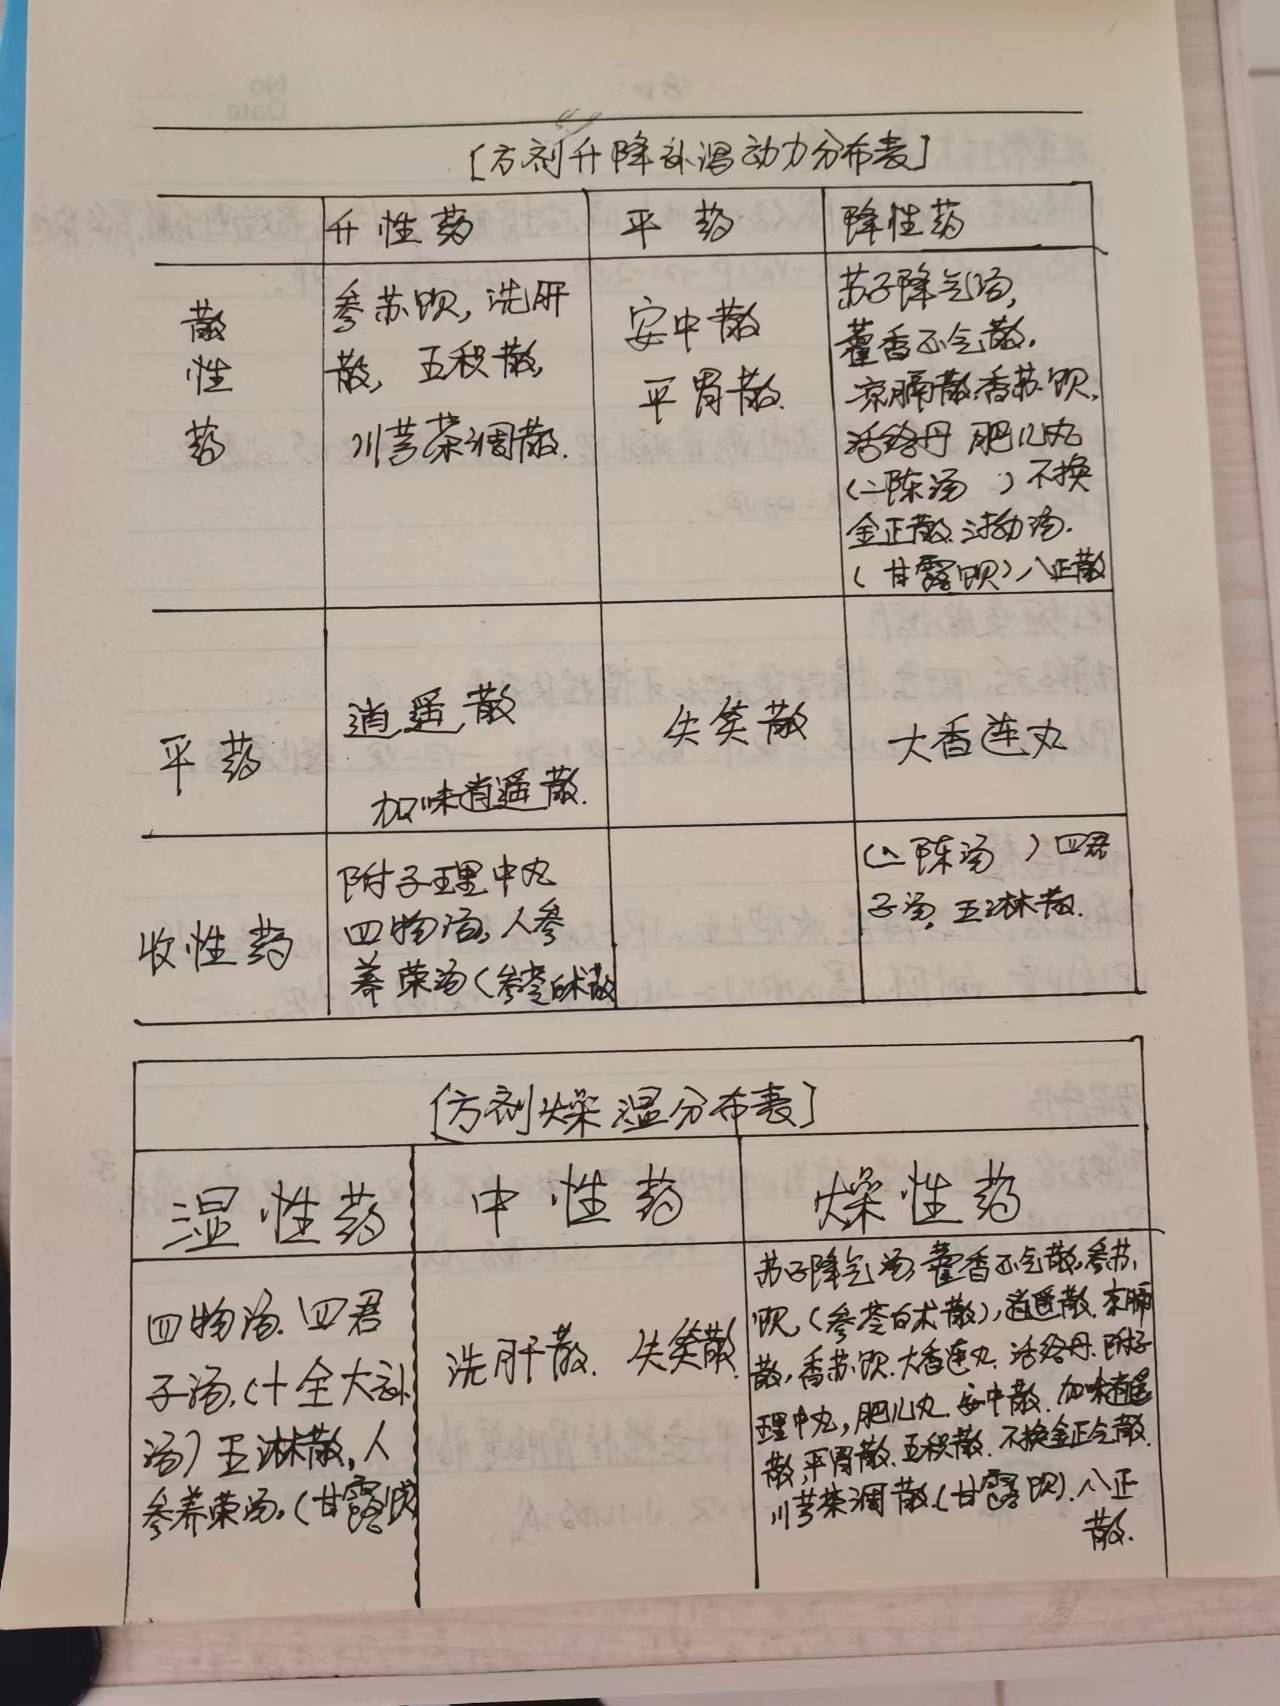 [方剂升降补泻动力分布表]
升性药 平药 降性药
散性药
参苏饮,洗肝
散,五积散,
川芎茶调散.
安中散
平胃散.
苏子降气汤,
藿香正气散.
凉膈散.香苏饮.
活络丹 肥儿丸
(二陈汤 ) 不换
金正散.
(甘露饮)八正散
平药
逍遥散
加味逍遥散.
失笑散
大香连丸
收性药
附子理中丸
四物汤,人参
养荣汤(参苓白术散
(二陈汤 ) 四君
子汤,五淋散.
[方剂燥湿分布表]
湿性药 中性药 燥性药
四物汤.四君
子汤,(十全大补
汤)五淋散,人
参养荣汤,(甘露饮
洗肝散. 失笑散
苏子降气汤 藿香正气散,参苏,
饮,(参苓白术散),逍遥散.凉膈
散,香苏饮.大香连丸.活络丹.附子
理中丸,肥儿丸.安中散.加味逍遥
散,平胃散.五积散.不换金正气散.
川芎茶调散.(甘露饮).八正
散.